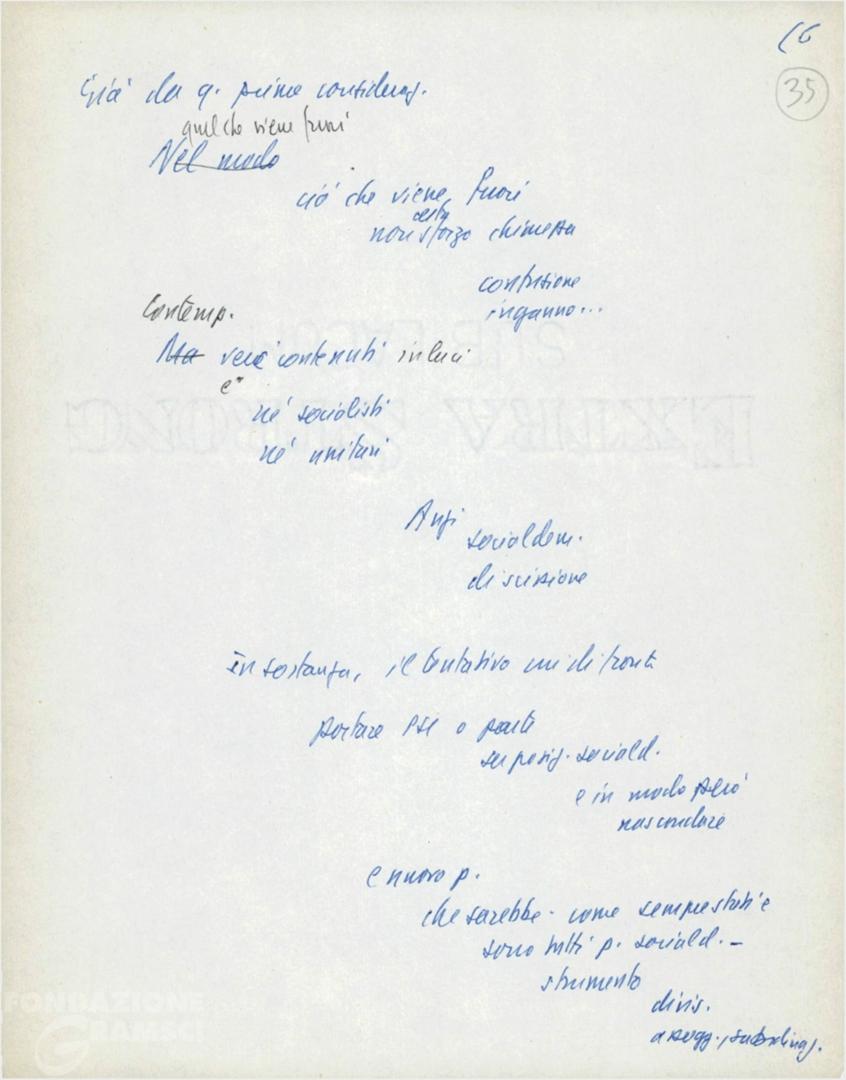 16
35
Già da q. prime consideraz.
quel che viene fuori
Nel modo
ciò che viene fuori
certo
non sforzo chiarezza
confusione
inganno...
Contemp.
Ma veri contenuti in luci
e"
né socialisti
né unitari
Anzi
socialdem.
di scissione
In sostanza, il tentativo cui di fronte
portare PSI o parte
su posiz. sociald.
e in modo però
nascondere
e nuovo p.
che sarebbe - come sempre stati e
sono tutti p. sociald. -
strumento
divis.
asogg., subordinaz.
FONDAZIONE
GRAMSCI